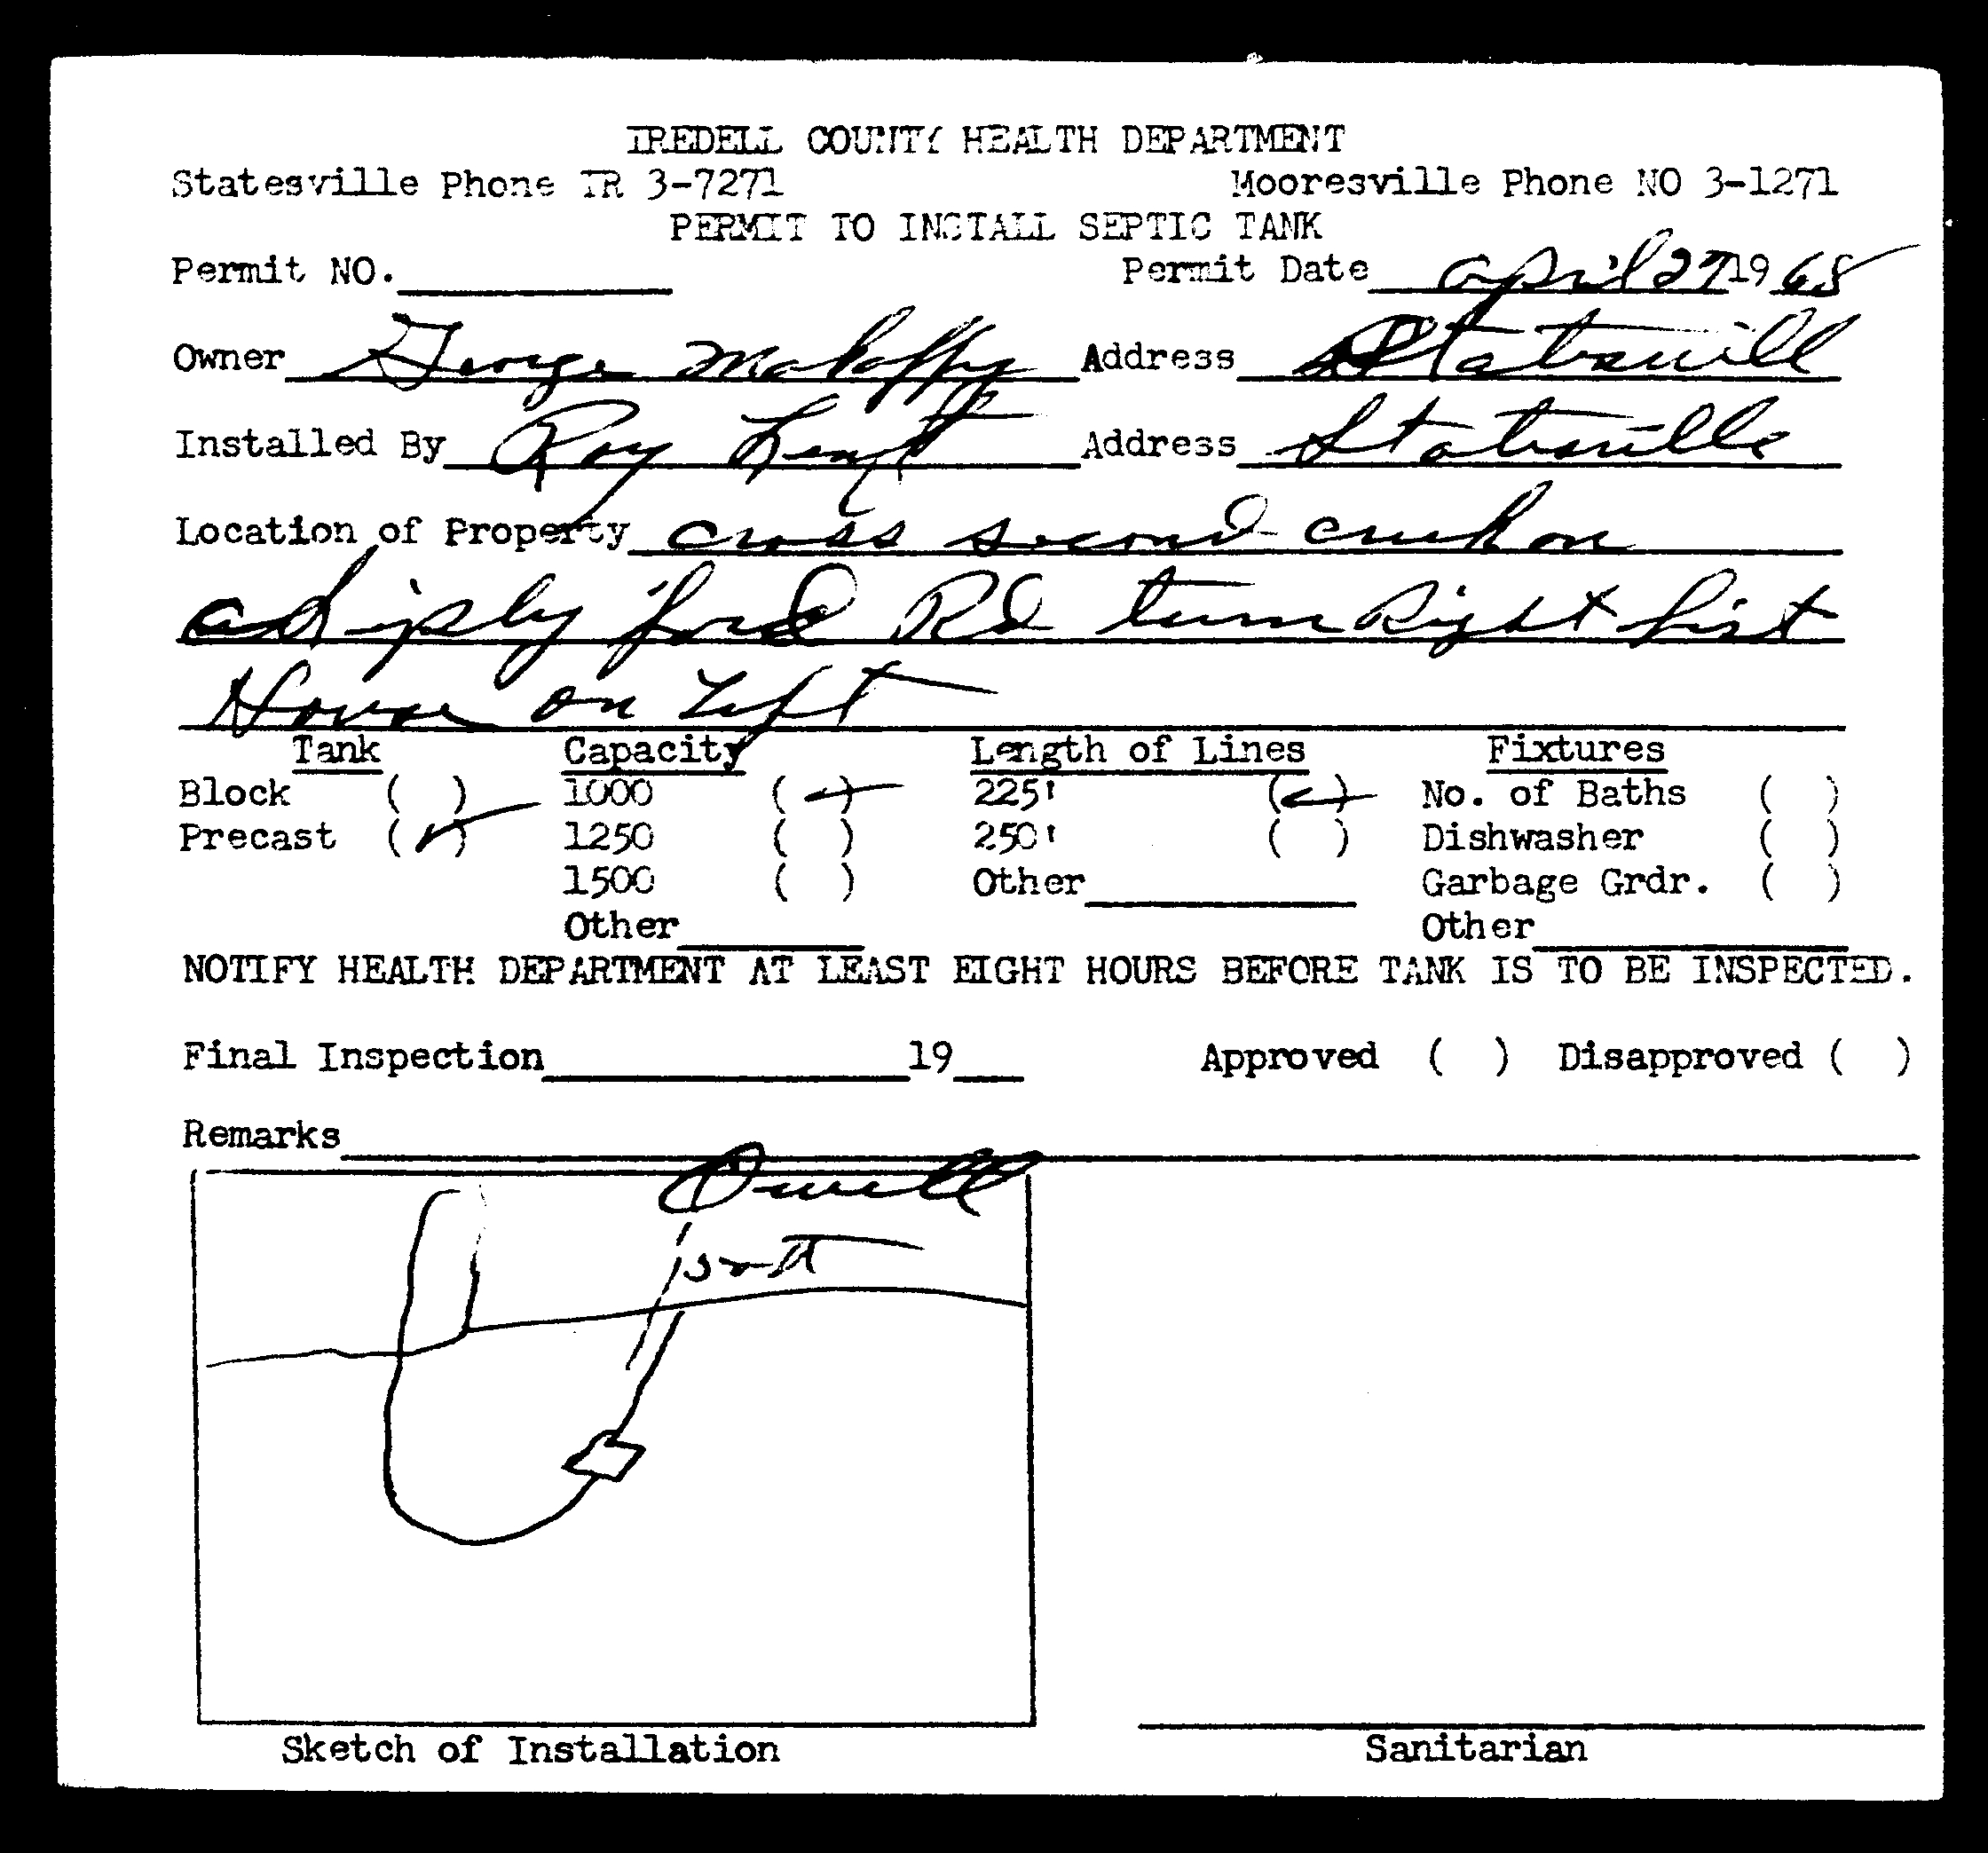 IREDELL COUNTY HEALTH DEPARTMENT
Statesville Phone TR 3-7271 Mooresville Phone NO 3-1271
PERMIT TO INSTALL SEPTIC TANK
Permit NO. Permit Date april 27 1968
Owner George Address
Installed By Roy Address
Location of Property cross second creek on
ford Rd turn Right first
House on Left
Tank Capacity Length of Lines Fixtures
Block ( ) 1000 (✓) 225' (✓) No. of Baths ( )
Precast (✓) 1250 ( ) 250' ( ) Dishwasher ( )
1500 ( ) Other Garbage Grdr. ( )
Other Other
NOTIFY HEALTH DEPARTMENT AT LEAST EIGHT HOURS BEFORE TANK IS TO BE INSPECTED.
Final Inspection 19 Approved ( ) Disapproved ( )
Remarks
Sketch of Installation Sanitarian